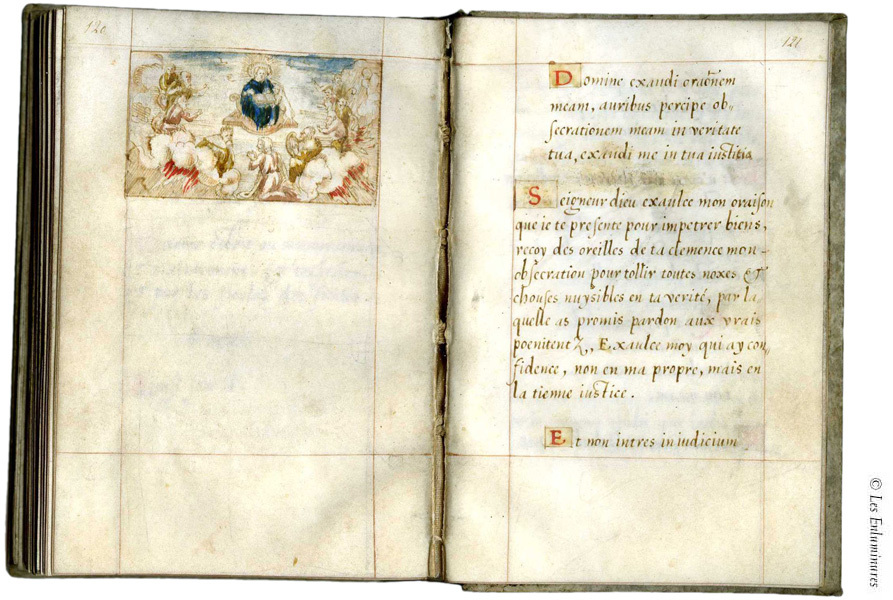 120
121
Domine exaudi orac̃nem
meam, auribus percipe ob„
secrationem meam in veritate
tua, exaudi me in tua iustitia
Seigneur dieu exaulce mon oraison
que ie te presente pour impetrer biens,
recoy des oreilles de ta clemence mon-
obsecration pour tollir toutes noxes &
chouses nuysibles en ta verité, par la
quelle as promis pardon aux vrais
poenitent
Exaulce moy qui ay con„
fidence, non en ma propre, mais en
la tienne iustice.
Et non intres in iudicium
© Les Enluminures